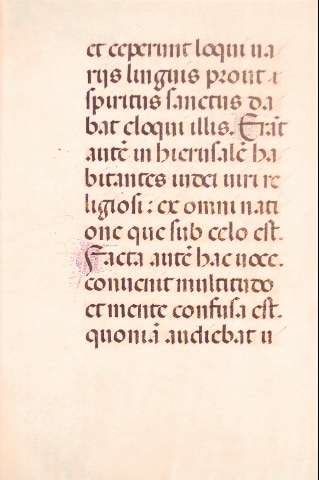 et ceperunt loqui ua
rijs linguis prout .
spiritus sanctus da
bat eloqui illis. Erāt
autē in hierusalē ha
bitantes iudei uiri re
ligiosi: ex omni nati
one que sub celo est.
Facta autē hac uoce.
conuenit multitudo
et mente confusa est.
quoniā audiebat u